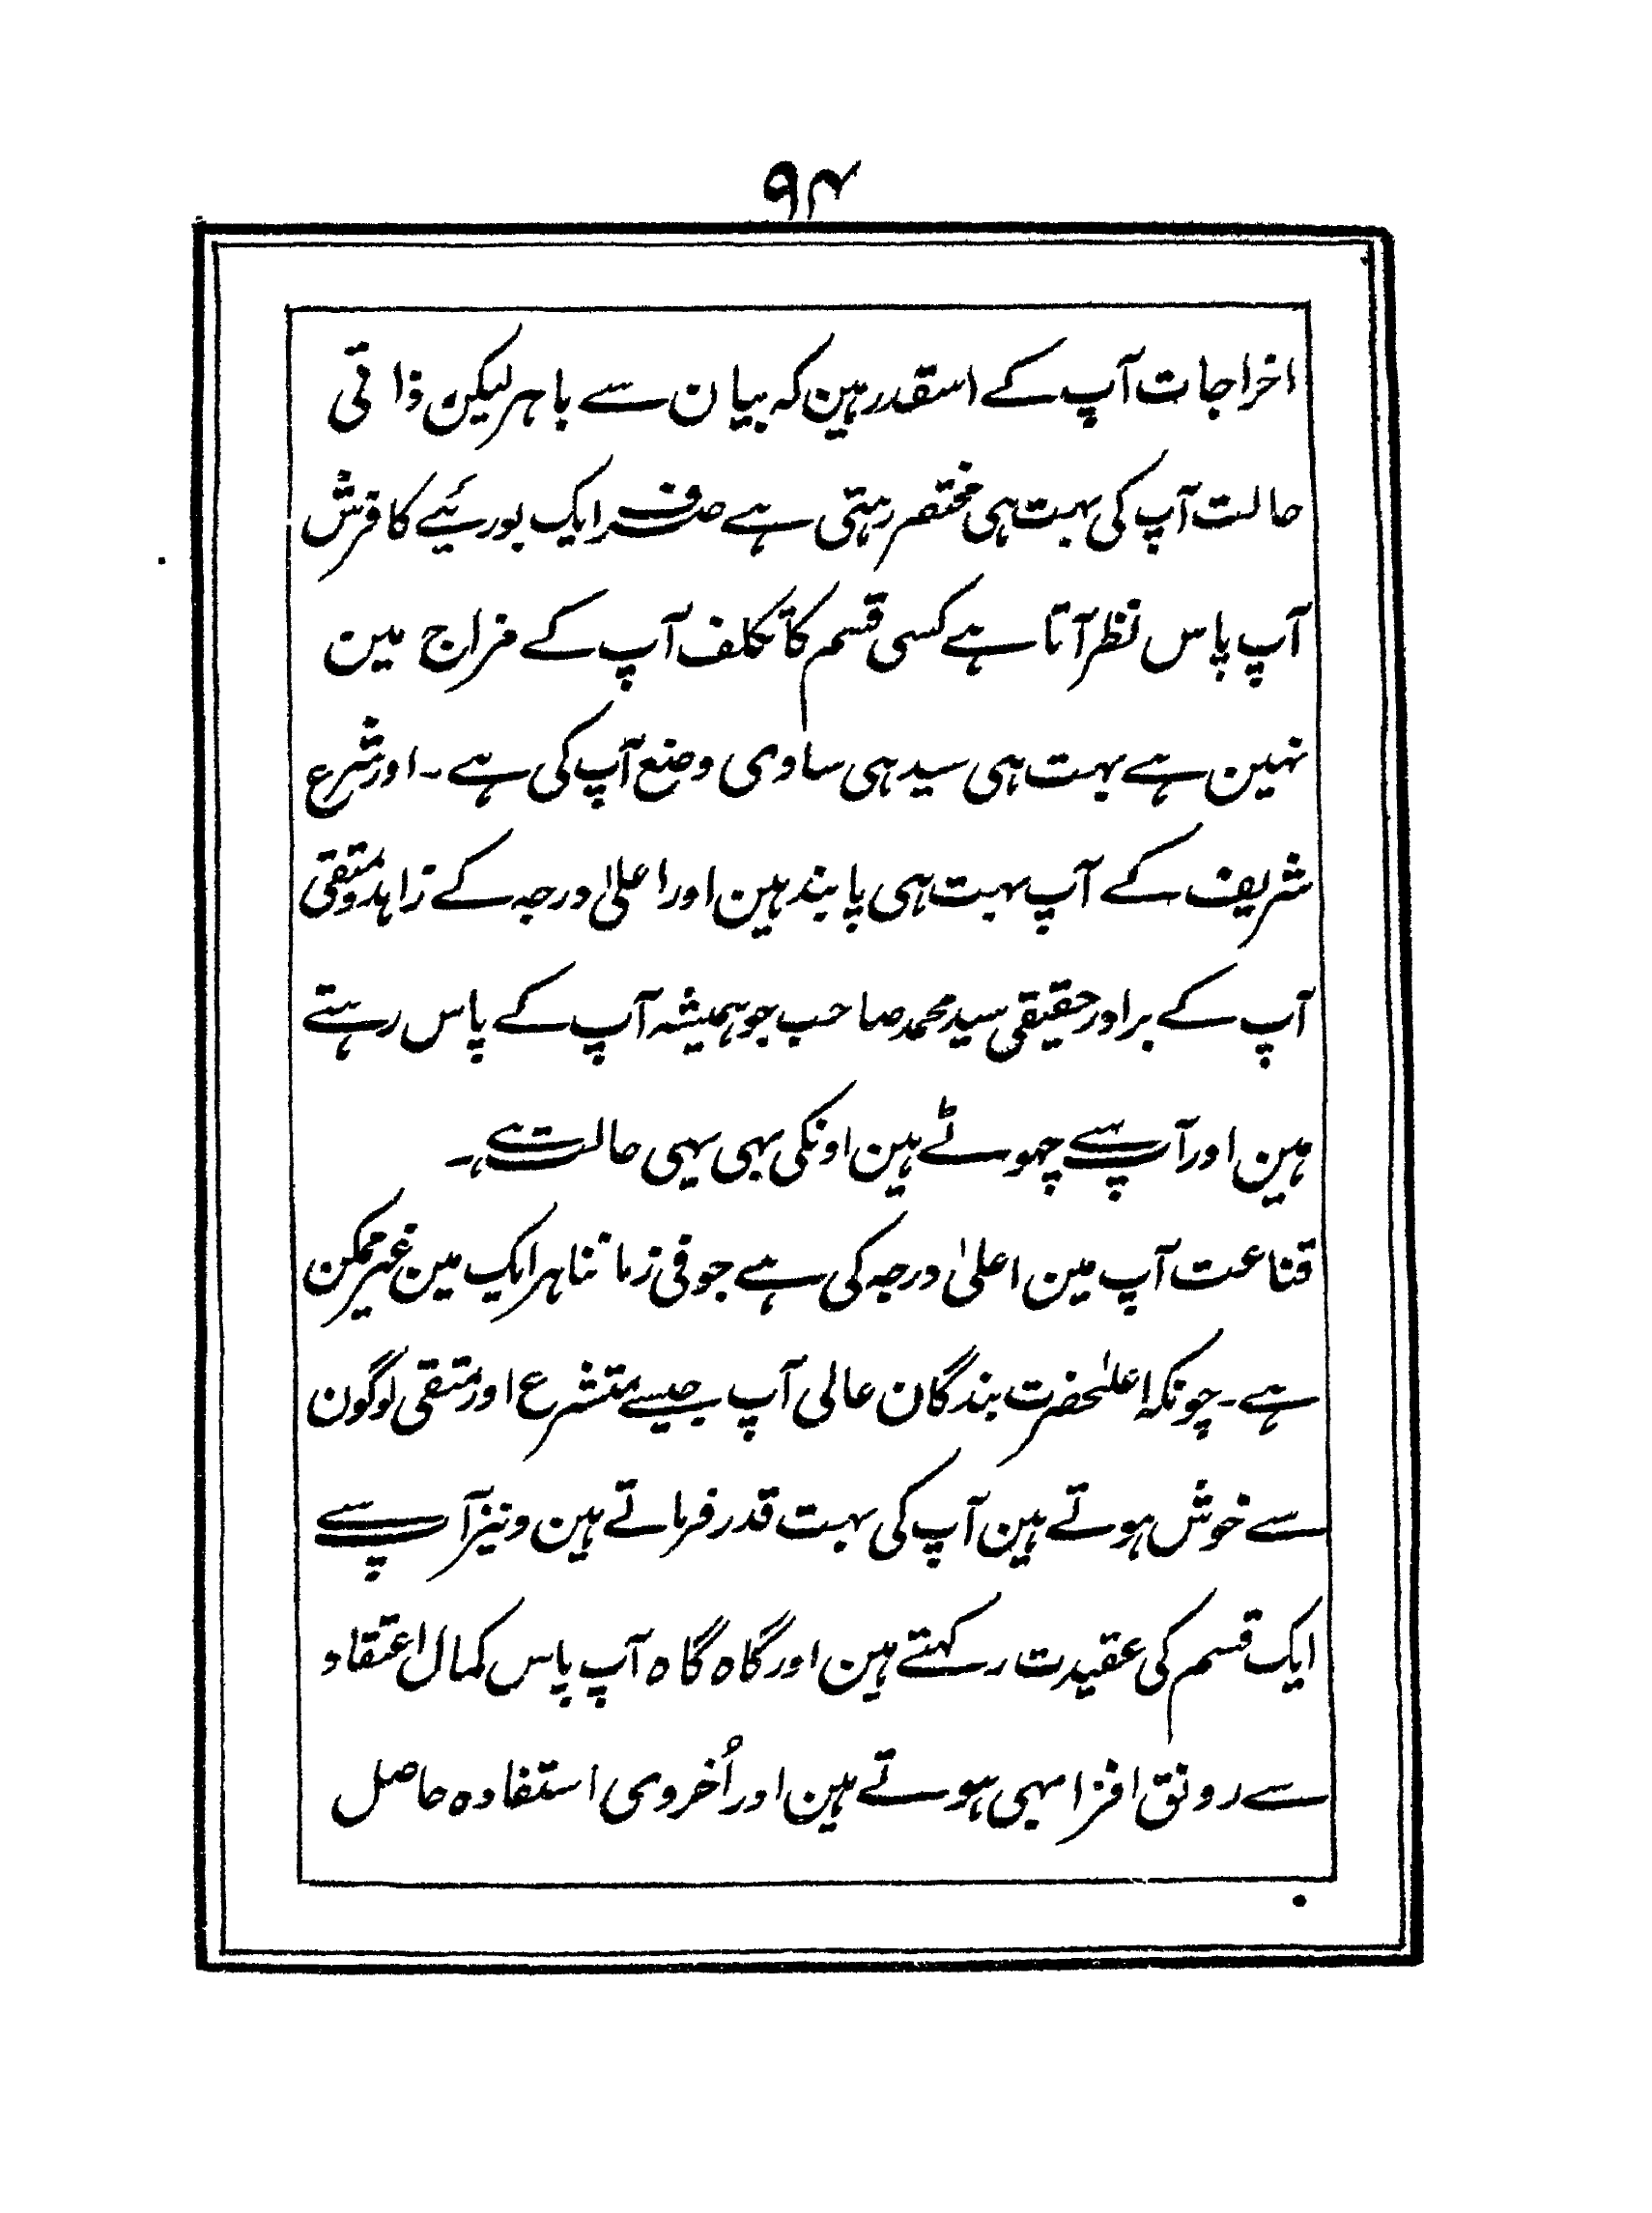 ۹۴
اخراجات آپ کے اسقدر ہین کہ بیان سے باہر لیکن ذاتی
حالت آپ کی بہت ہی مختصر رہتی ہے صرف ایک بورئیے کا فرش
آپ پاس نظر آتا ہے کسی قسم کا تکلف آپ کے مزاج مین
نہین ہے بہت ہی سیدہی سادی وضع آپ کی ہے ۔ اور شرع
شریف کے آپ بہت ہی پابند ہین اور اعلیٰ درجہ کے زاہد و متقی
آپ کے برادر حقیقی سید محمد صاحب جو ہمیشہ آپ کے پاس رہتے
ہین اور آپ سے چہوٹے ہین اونکی بہی یہی حالت ہے ۔
قناعت آپ مین اعلیٰ درجہ کی ہے جو فی زماننا ہر ایک مین غیر ممکن
ہے ۔ چونکہ اعلٰحضرت بندگان عالی آپ جیسے متشرع اور متقی لوگون
سے خوش ہوتے ہین آپ کی بہت قدر فرماتے ہین و نیز آپ سے
ایک قسم کی عقیدت رکہتے ہین اور گاہ گاہ آپ پاس کمال اعتقاد
سے رونق افزا بہی ہوتے ہین اور اُخروی استفادہ حاصل